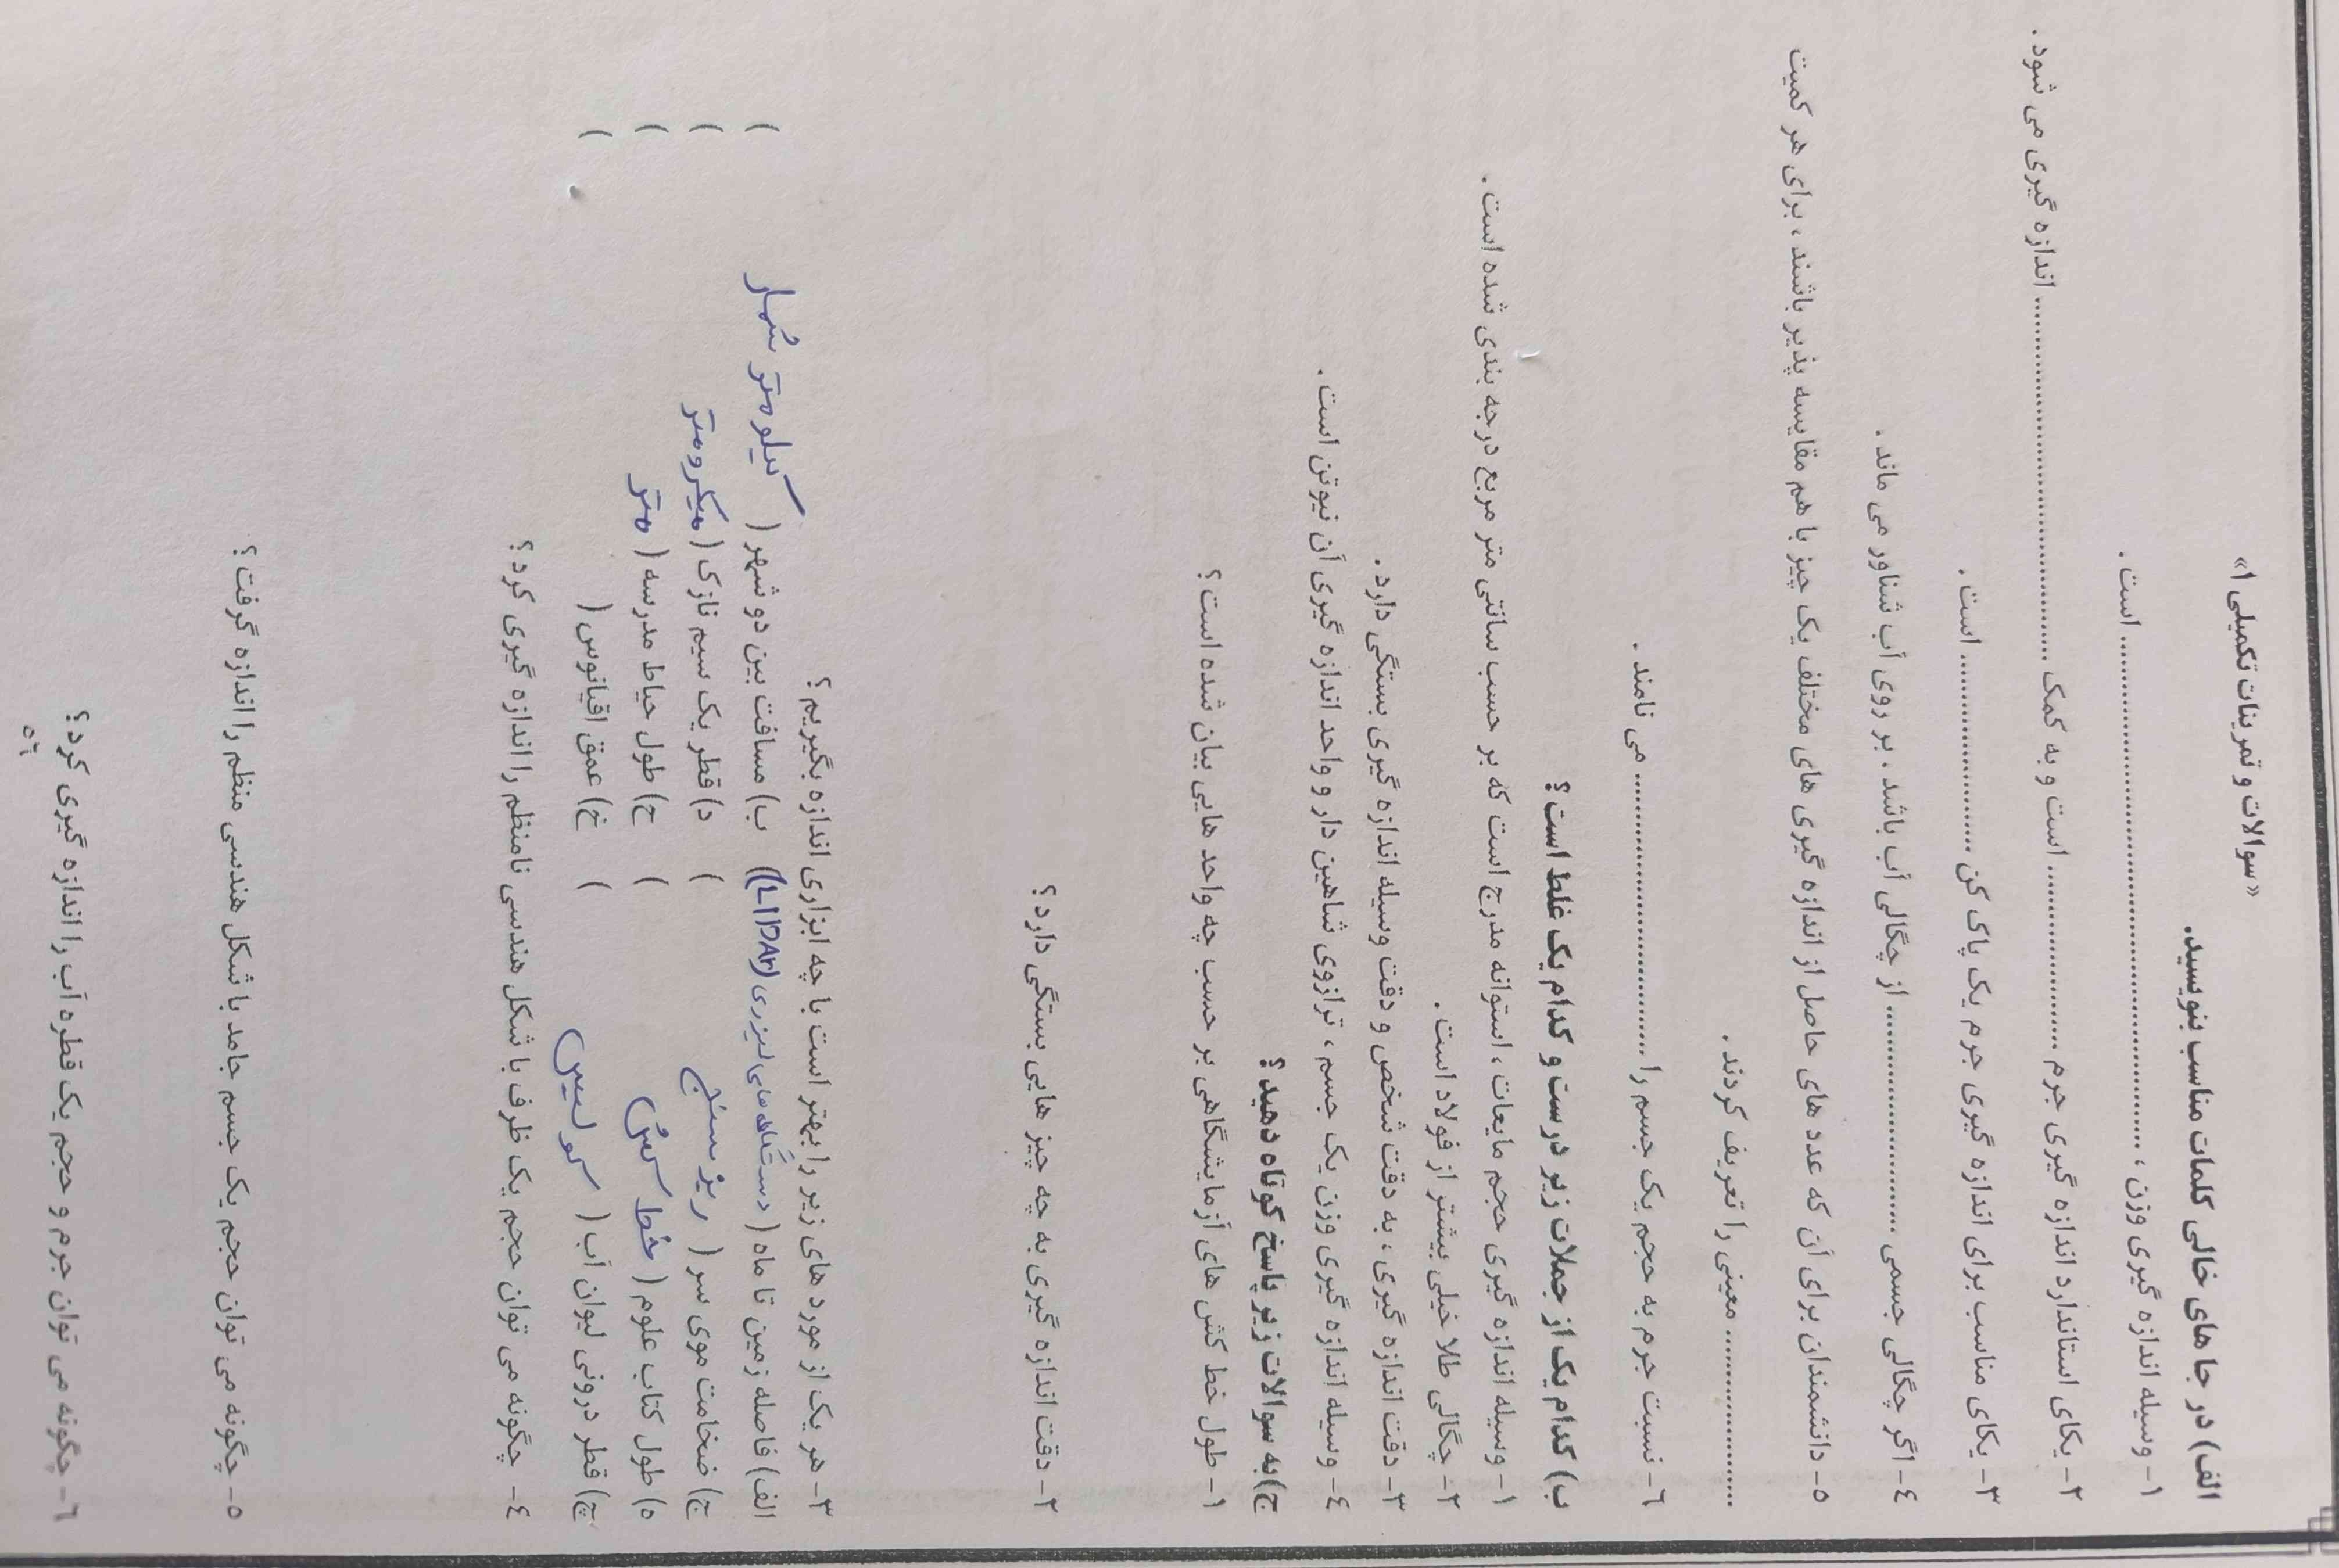 «سوالات و تمرینات تکمیلی ۱»
الف) در جا های خالی کلمات مناسب بنویسید.
۱- وسیله اندازه گیری وزن ، .................................................. است .
۲- یکای استاندارد اندازه گیری جرم .................... است و به کمک .................................................. اندازه گیری می شود .
۳- یکای مناسب برای اندازه گیری جرم یک پاک کن .................... است .
۴- اگر چگالی جسمی .............................. از چگالی آب باشد ، بر روی آب شناور می ماند .
۵- دانشمندان برای آن که عدد های حاصل از اندازه گیری های مختلف یک چیز با هم مقایسه پذیر باشند ، برای هر کمیت
.............................. معینی را تعریف کردند .
۶- نسبت جرم به حجم یک جسم را .............................. می نامند .
ب) کدام یک از جملات زیر درست و کدام یک غلط است ؟
۱- وسیله اندازه گیری حجم مایعات ، استوانه مدرج است که بر حسب سانتی متر مربع درجه بندی شده است .
۲- چگالی طلا خیلی بیشتر از فولاد است .
۳- دقت اندازه گیری ، به دقت شخص و دقت وسیله اندازه گیری بستگی دارد .
۴- وسیله اندازه گیری وزن یک جسم ، ترازوی شاهین دار و واحد اندازه گیری آن نیوتن است .
ج) به سوالات زیر پاسخ کوتاه دهید ؟
۱- طول خط کش های آزمایشگاهی بر حسب چه واحد هایی بیان شده است ؟
۲- دقت اندازه گیری به چه چیز هایی بستگی دارد ؟
۳- هر یک از مورد های زیر را بهتر است با چه ابزاری اندازه بگیریم ؟
الف) فاصله زمین تا ماه ( دستگاه های لیزری (LIDAr)) ب) مسافت بین دو شهر ( کیلومتر شمار )
ج) ضخامت موی سر ( ریز سنج ) د) قطر یک سیم نازک ( میکرومتر )
ه) طول کتاب علوم ( خط کش ) ح) طول حیاط مدرسه ( متر )
چ) قطر درونی لیوان آب ( کولیس ) خ) عمق اقیانوس ( )
۴- چگونه می توان حجم یک ظرف با شکل هندسی نامنظم را اندازه گیری کرد ؟
۵- چگونه می توان حجم یک جسم جامد با شکل هندسی منظم را اندازه گرفت ؟
۶- چگونه می توان جرم و حجم یک قطره آب را اندازه گیری کرد ؟
۵۶